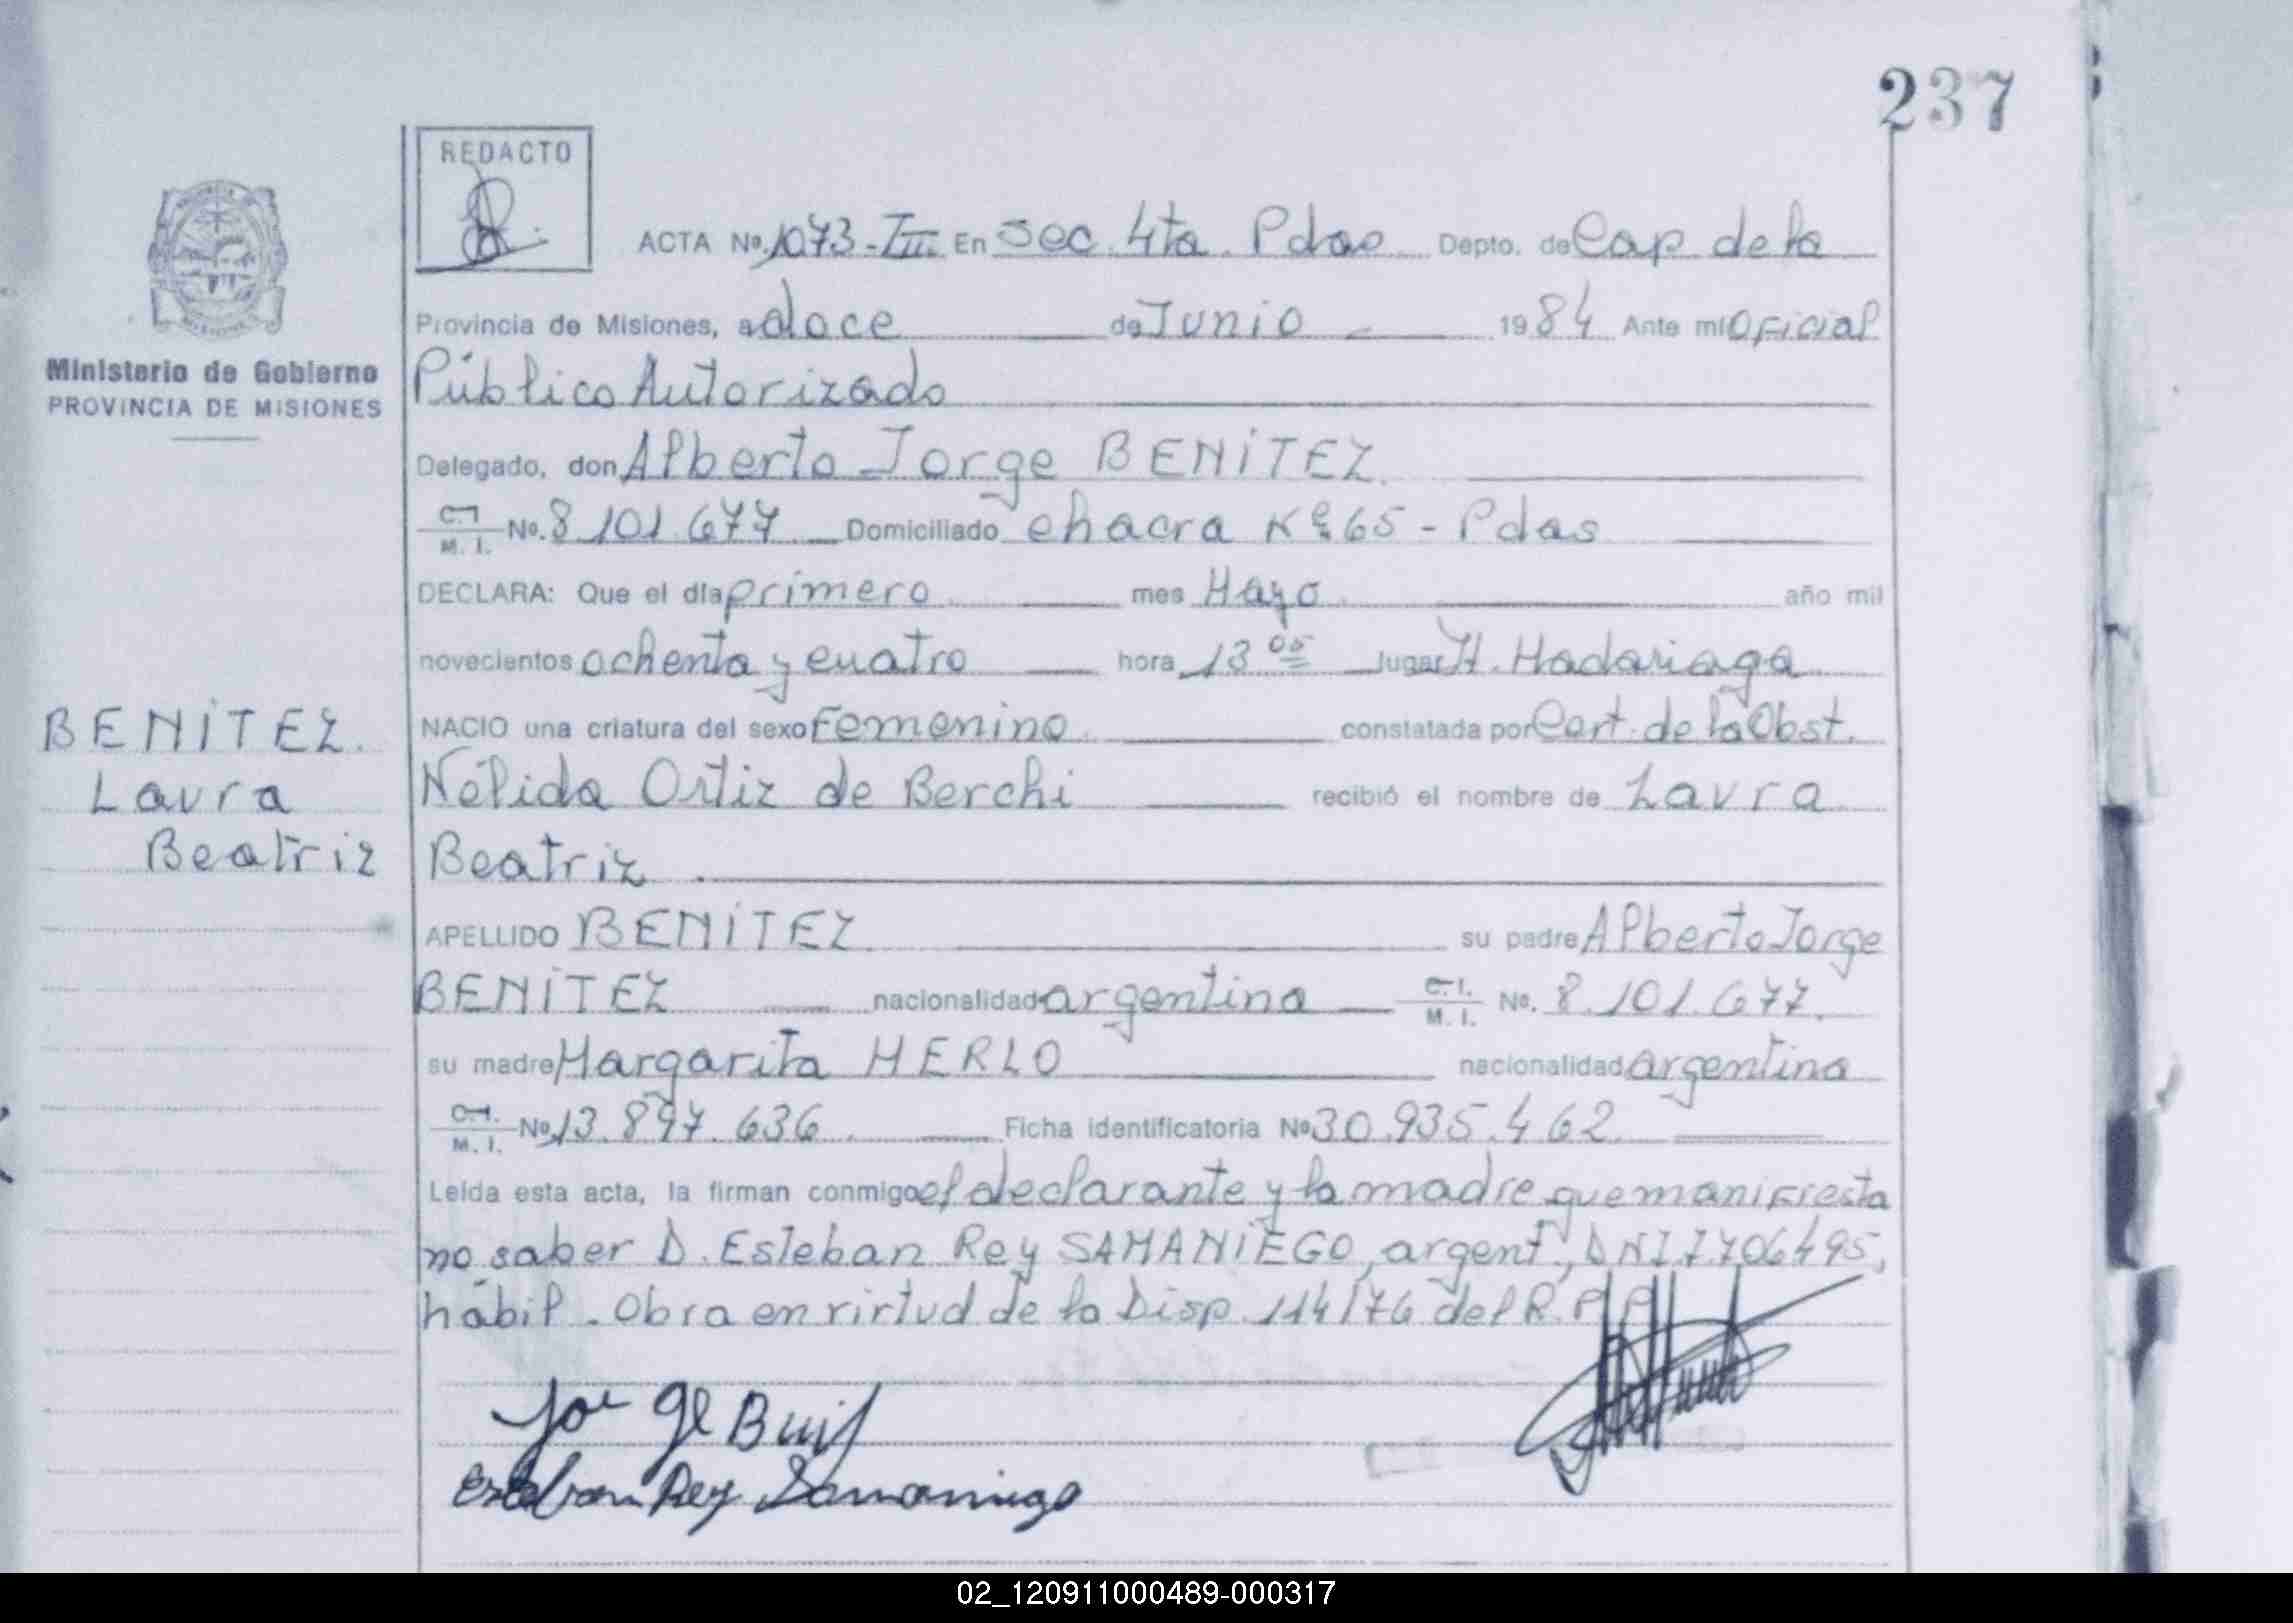 237
REDACTO
ACTA No. 1073-III En Sec. 4ta. Pdas Depto. de Cap. de la
Provincia de Misiones, a doce de Junio 1984 Ante mí Oficial
Público Autorizado
Ministerio de Gobierno
PROVINCIA DE MISIONES
Delegado, don Alberto Jorge BENÍTEZ.
C.I. M. I. No. 8.101.677 Domiciliado chacra 65 - Pdas
DECLARA: Que el día primero mes Mayo año mil
novecientos ochenta y cuatro hora 13 05 lugar H. Madariaga
NACIO una criatura del sexo Femenino constatada por Cert. de la Obst.
Nélida Ortiz de Berchi recibió el nombre de Laura
Beatriz
BENÍTEZ.
Laura
Beatriz
APELLIDO BENÍTEZ su padre Alberto Jorge
BENÍTEZ nacionalidad argentina C.I. M. I. No. 8.101.677.
su madre Margarita MERLO nacionalidad argentina
C.I. M. I. No. 13.897.636 Ficha identificatoria No 30.935.462
Leída esta acta, la firman conmigo el declarante y la madre que manifiesta
no saber D. Esteban Rey SAMANIEGO, argent, DNI 7706495,
hábil. Obra en virtud de la Disp. 114/76 del R.P.P.
Esteban Rey Samaniego
02_120911000489-000317